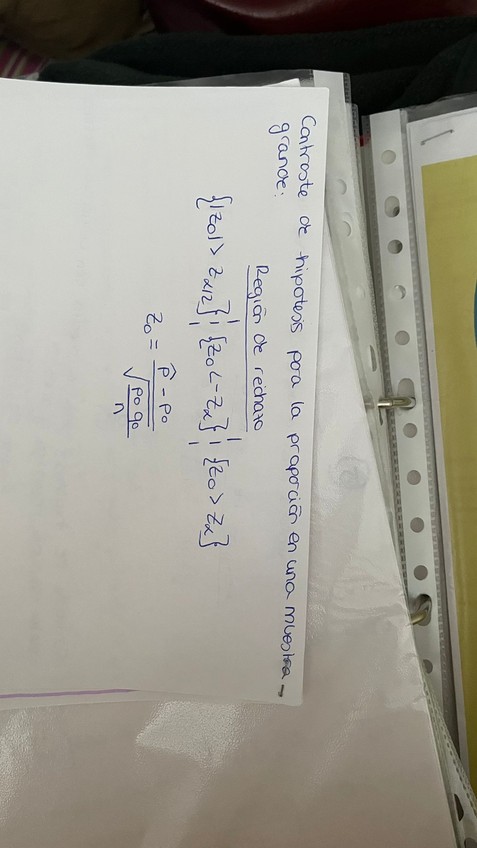 Contraste de hipotesis para la proporción en una muestra
grande:
Región de rechazo
{|z₀| > z_{α/2}} ¦ {z₀ < -z_α} ¦ {z₀ > z_α}
z₀ = \frac{p̂ - p₀}{\sqrt{\frac{p₀ q₀}{n}}}